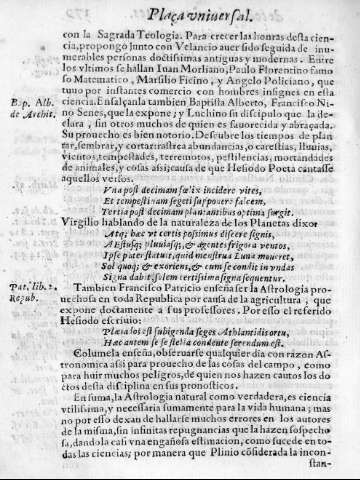 Plaça vniuersal.
con la Sagrada Teologia. Para crecer las honras desta cien-
cia, propongo junto con Velancio auer sido seguida de in-
numerables personas doctissimas antiguas y modernas. Entre
los vltimos se hallan Iuan Morliano, Paulo Florentino famo
so Matematico, Marsilio Ficino, y Angelo Policiano, que
tuuo por instantes comercio con hombres insignes en esta
B. p. Alb.
de Archit.
ciencia. Ensalçanla tambien Baptista Alberto, Francisco Ni-
no Senes, que la expone; y Luchino su discipulo que la de-
clara, sin otros muchos de quien es fauorecida y abraçada.
Su prouecho es bien notorio. Descubre los tiempos de plan
tar, sembrar, y cortar: rastrea abundancias, o carestias, lluuias,
vientos, tempestades, terremotos, pestilencias, mortandades
de animales, y cosas assi: causa de que Hesiodo Poeta cantasse
aquellos versos.
Vna post decimam fælix incidere vites,
Et tempestiuam segeti supponere falcem,
Tertia post decimam plantantibus optima surgit.
Virgilio hablando de la naturaleza de los Planetas dixo:
Atq; hæc vt certis possimus discere signis,
Aestusq; pluuiasq; & agentes frigora ventos,
Ipse pater statuit, quid menstrua Luna moneret,
Sol quoq; & exoriens, & cum se condit in vndas
Signa dabit, solem certissima signa sequuntur.
Pat. lib. 2.
Repub.
Tambien Francisco Patricio enseña ser la Astrologia pro-
uechosa en toda Republica por causa de la agricultura, que
expone doctamente a sus professores. Por esso el referido
Hesiodo escriuio:
loci est subigenda seges Athlantidis ortu,
Hac autem se se stella condente serendum est.
Columela enseña, obseruarse qualquier dia con razon As-
tronomica assi para prouecho de las cosas del campo, como
para huir muchos peligros, de quien nos hazen cautos los do
ctos desta disciplina en sus pronosticos.
En suma, la Astrologia natural como verdadera, es ciencia
vtilissima, y necessaria sumamente para la vida humana; mas
no por esso dexan de hallarse muchos errores en los autores
de la misma, sin infinitas repugnancias que la hazen sospecho
sa, dandola casi vna engañosa estimacion, como sucede en to-
das las ciencias; por manera que Plinio cõsiderada la incon-
stan-